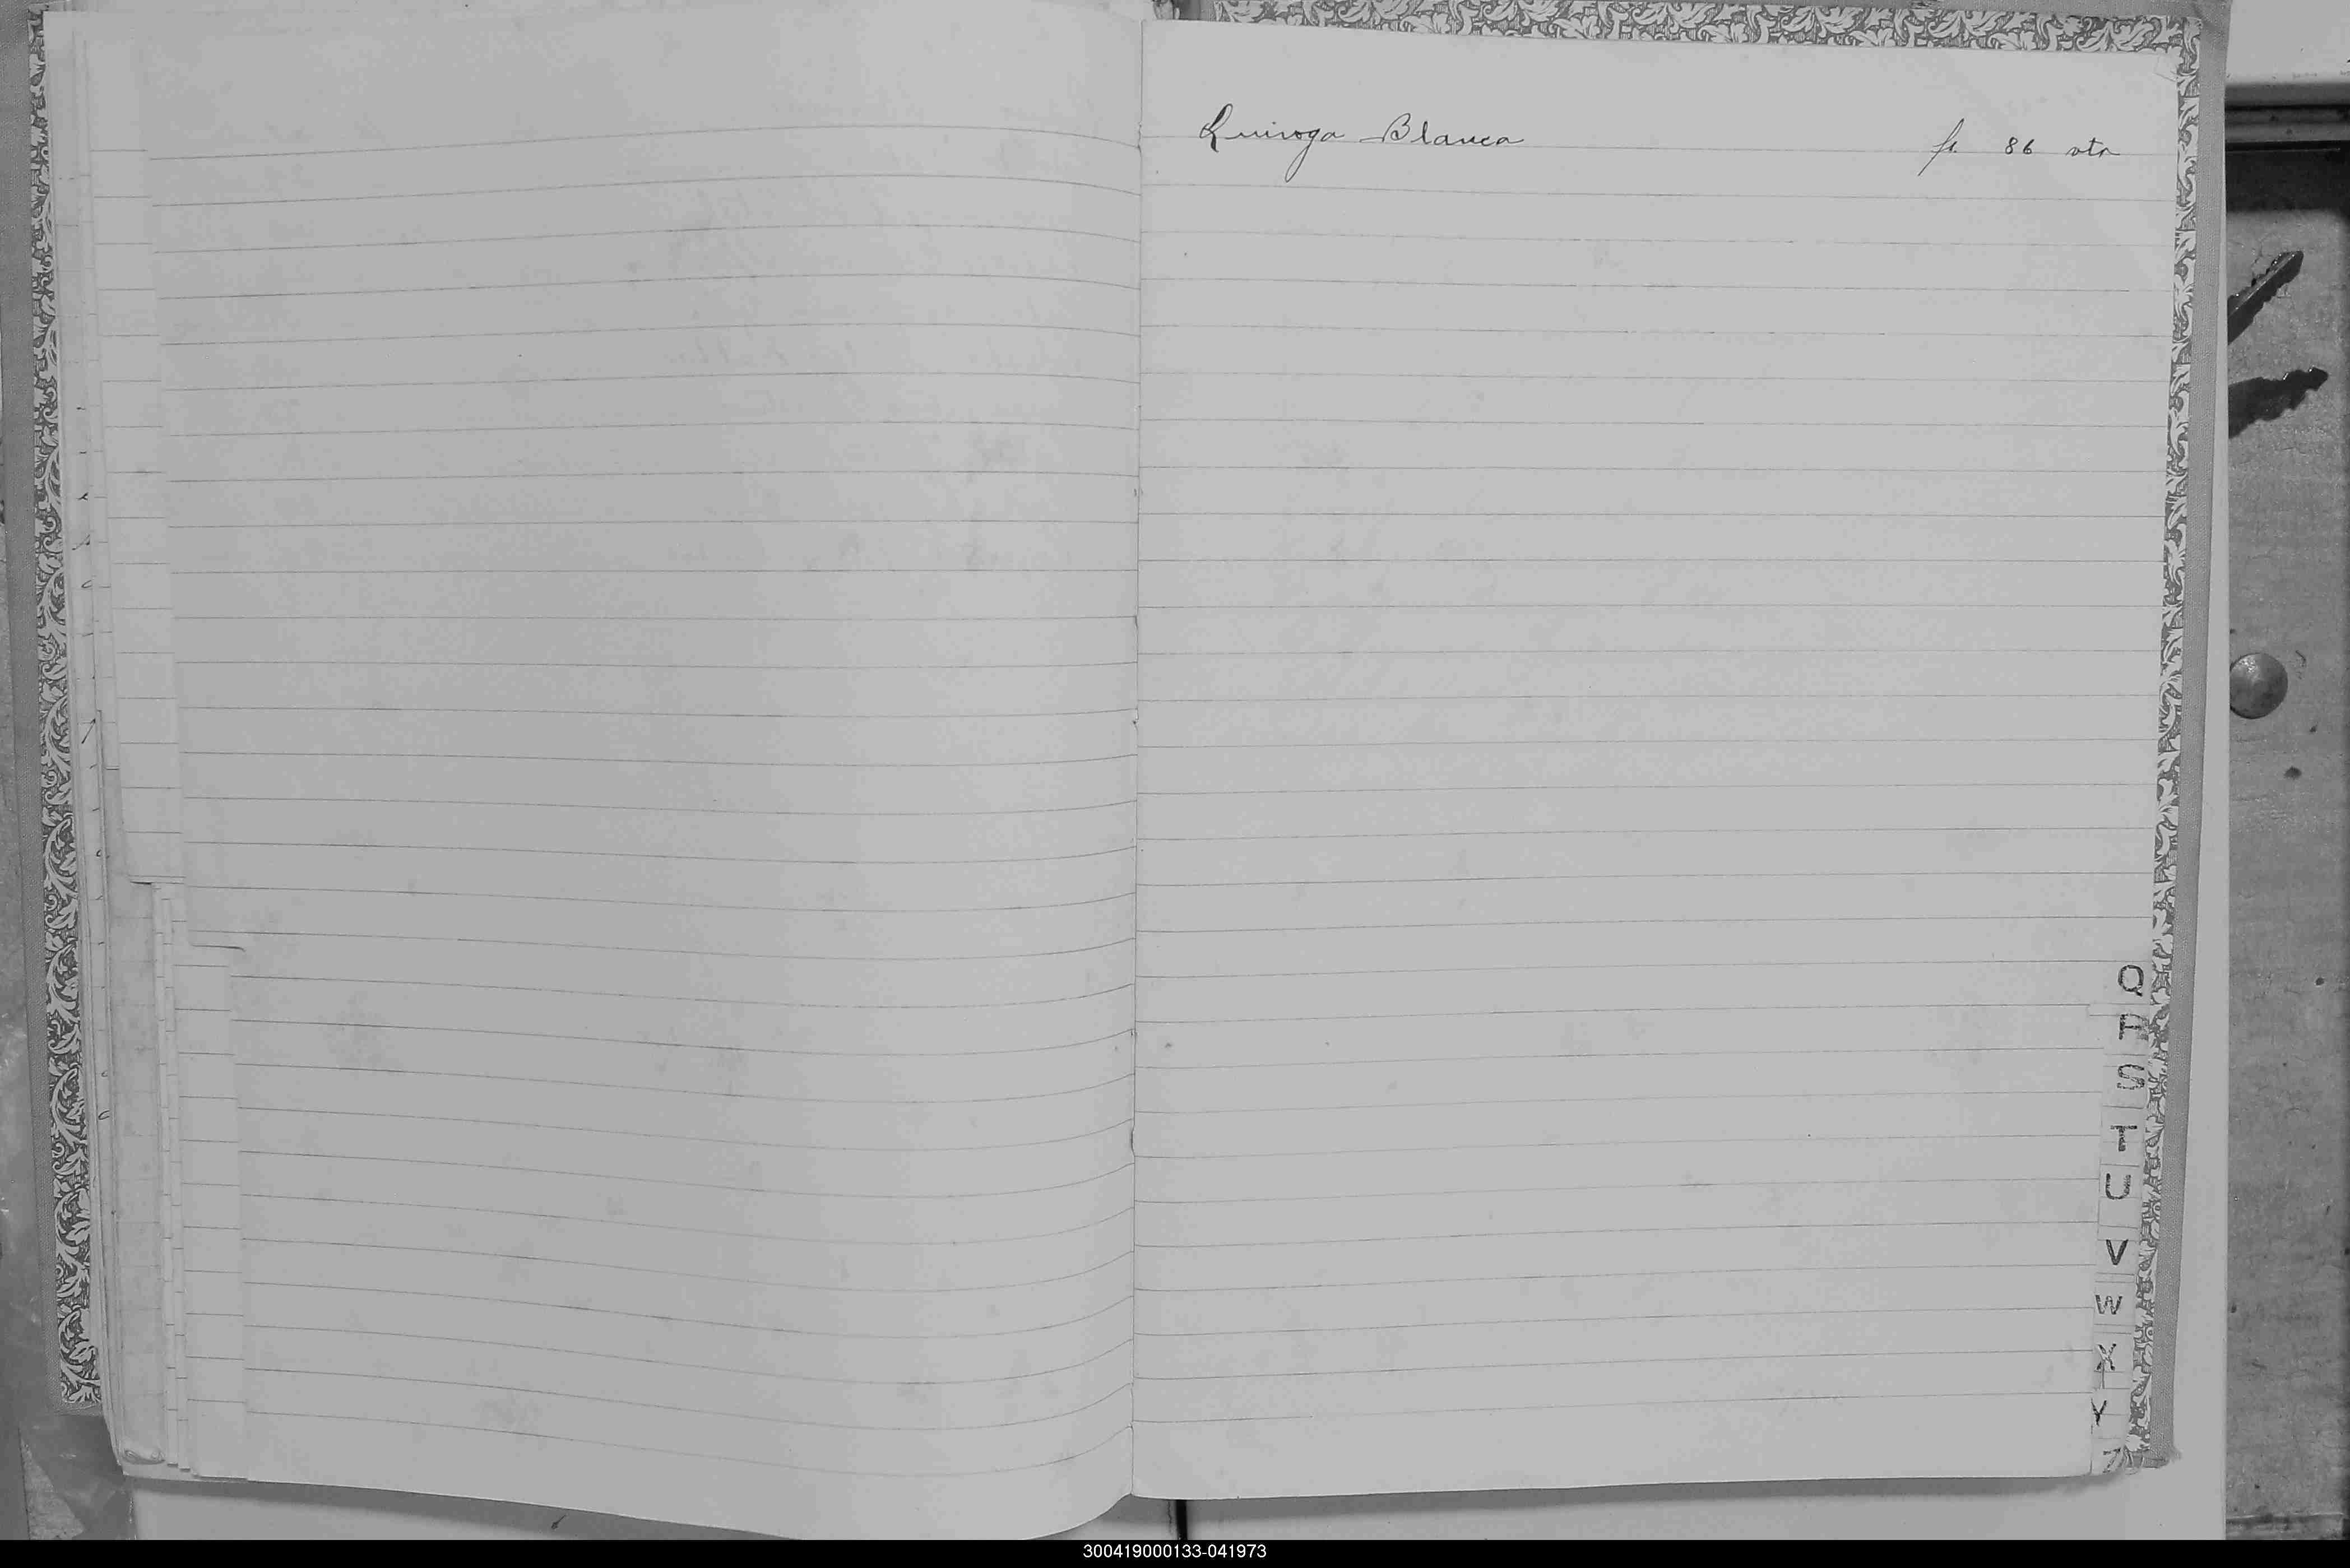 Quiroga Blanca fs. 86 vta
Q
R
S
T
U
V
W
X
Y
Z
300419000133-041973